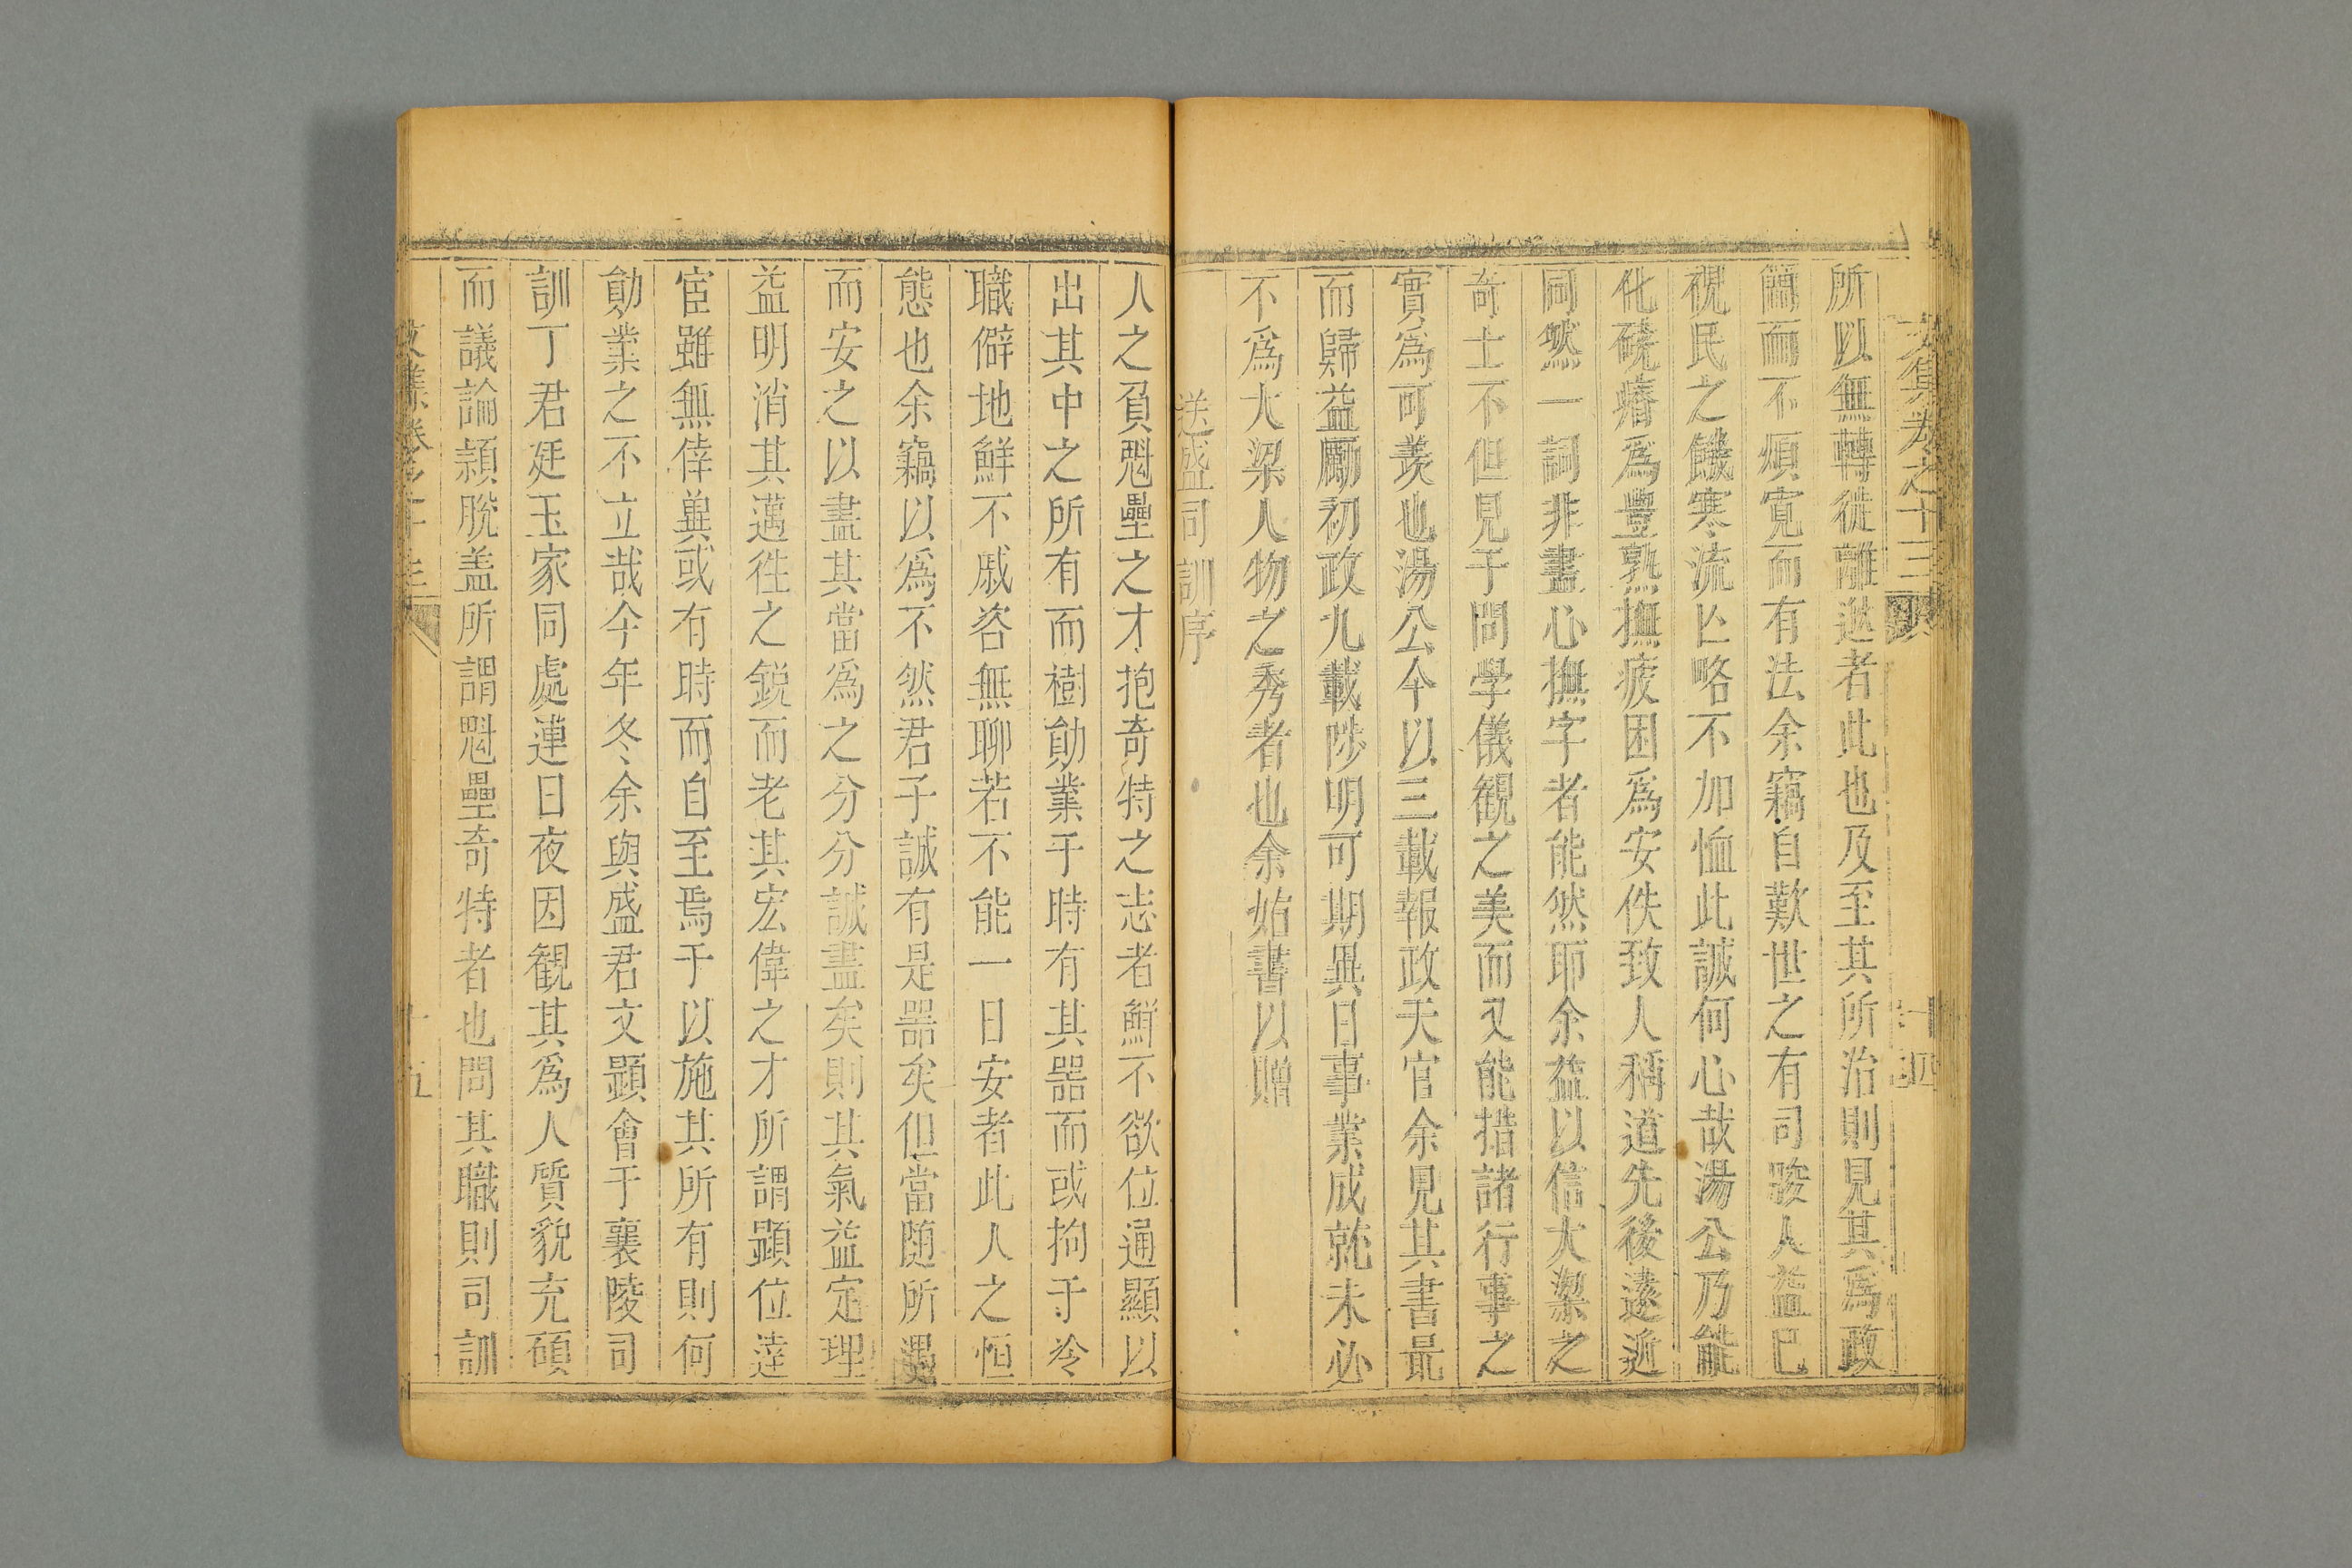 文集卷之十三 十四
所以無轉徙離逖者此也及至其所治則見其爲政
簡而不煩寬而有法余竊自歎世之有司殘人益已
視民之饑寒流亡略不加恤此誠何心哉湯公乃能
化磽瘠爲豐熟撫疲困爲安佚致人稱道先後遠近
同然一詞非盡心撫字者能然耶余益以信大梁之
奇士不但見于問學儀観之美而又能措諸行事之
實爲可羡也湯公今以三載報政天官余見其書最
而歸益勵初政九載陟明可期異日事業成就未必
不爲大梁人物之秀者也余始書以贈
送盛司訓序
人之負魁壘之才抱奇特之志者鮮不欲位通顯以
出其中之所有而樹勛業于時有其噐而或拘于冷
職僻地鮮不戚咨無聊若不能一日安者此人之恒
態也余竊以爲不然君子誠有是噐矣但當随所遇
而安之以盡其當爲之分分誠盡矣則其氣益定理
益明消其邁徃之鋭而老其宏偉之才所謂顕位逹
宦雖無倖兾或有時而自至焉于以施其所有則何
勛業之不立哉今年冬余與盛君文顕會于襄陵司
訓丁君廷玉家同處連日夜因観其爲人質貌充碩
而議論頴脫盖所謂魁壘奇特者也問其職則司訓
文集卷之十三 十五